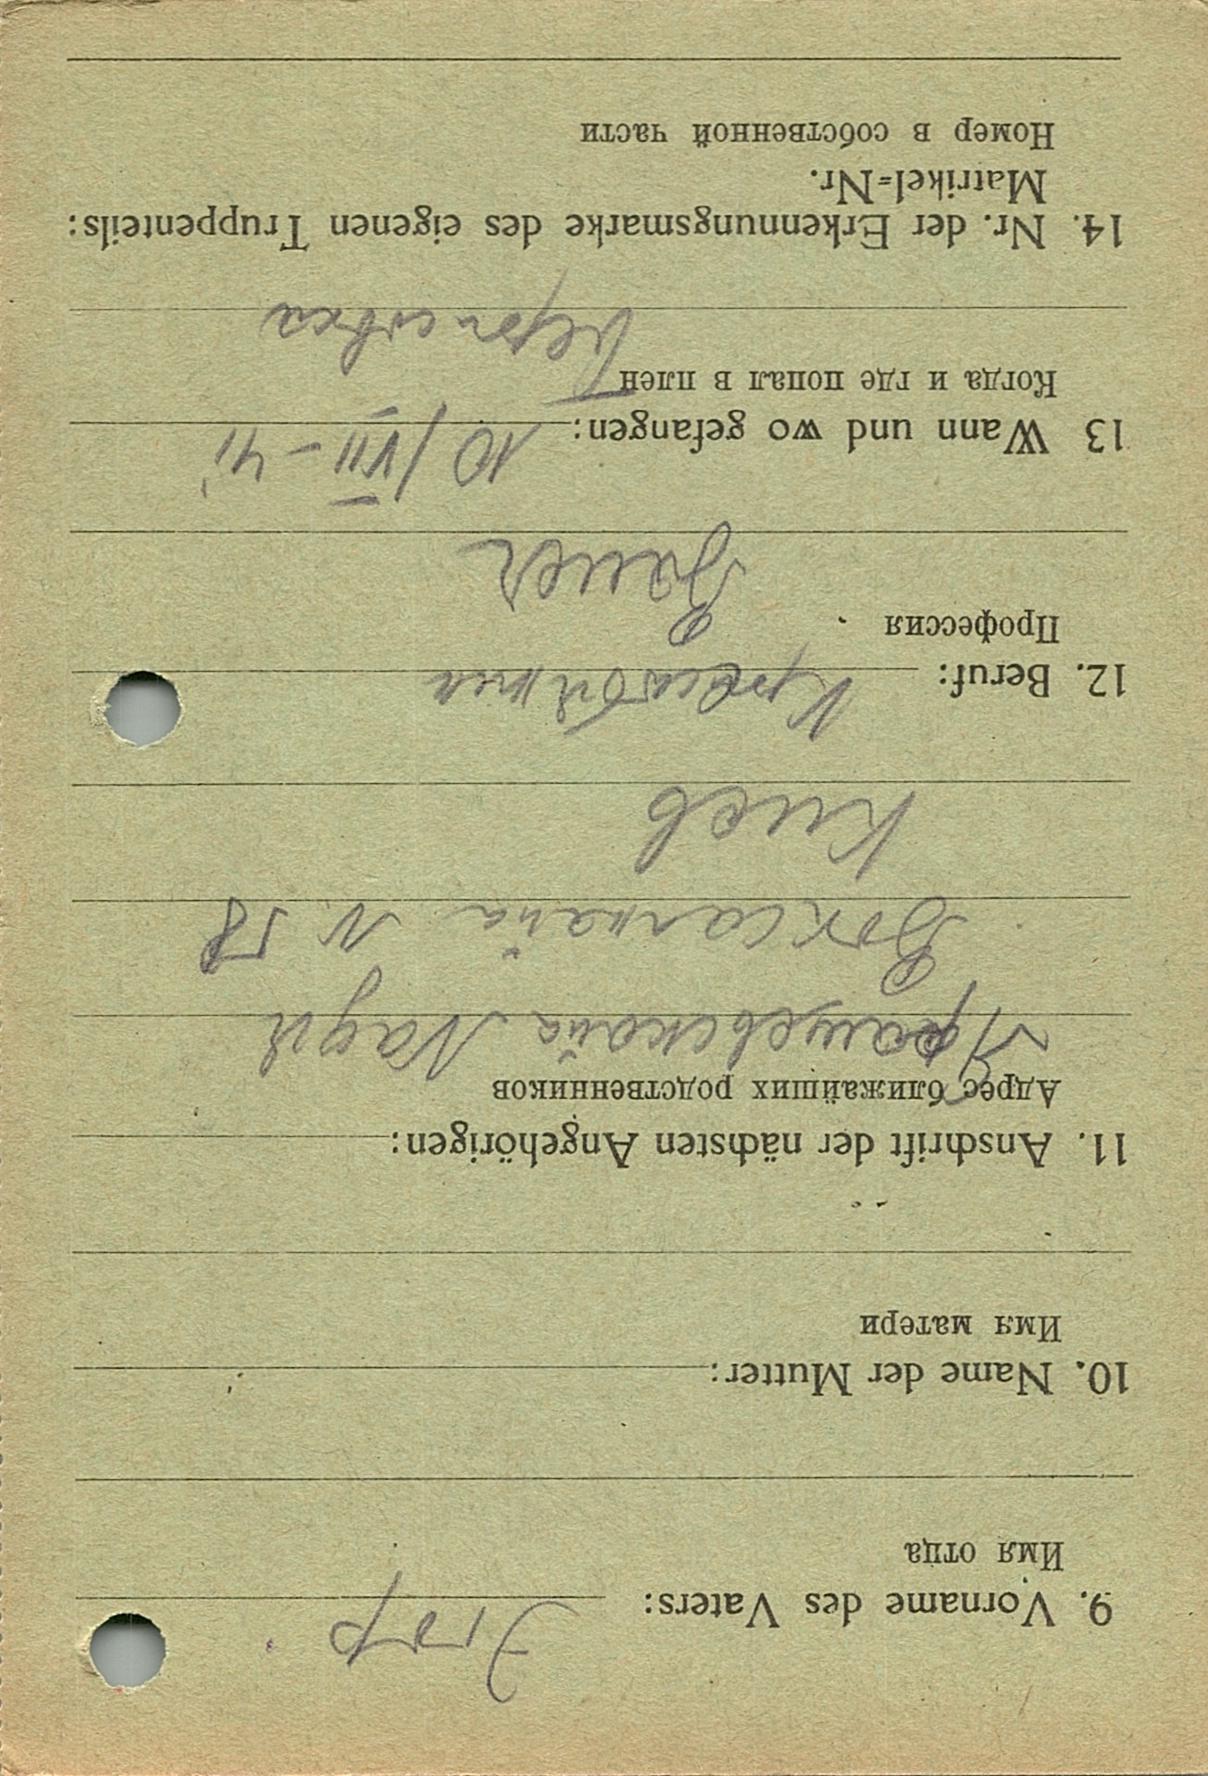 9. Vorname des Vaters:
Имя отца
10. Name der Mutter:
Имя матери
11. Anschrift der nächsten Angehörigen:
Адрес ближайших родственников
Надя
Вокзальная N 58
Киев
12. Beruf:
Профессия
13 Wann und wo gefangen: 10/VII-41
Когда и где попал в плен
14. Nr. der Erkennungsmarke des eigenen Truppenteils:
Matrikel=Nr.
Номер в собственной части